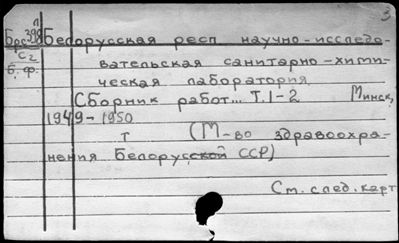 3
п
Бро 398 Белорусская респ научно-исследо-
С2 вательская санитарно-хими-
б. ф. ческая лаборатория
Сборник работ... Т. 1-2 Минск,
1949-1950
т (М-во здравоохра-
нения Белорусской ССР)
См. след. карт